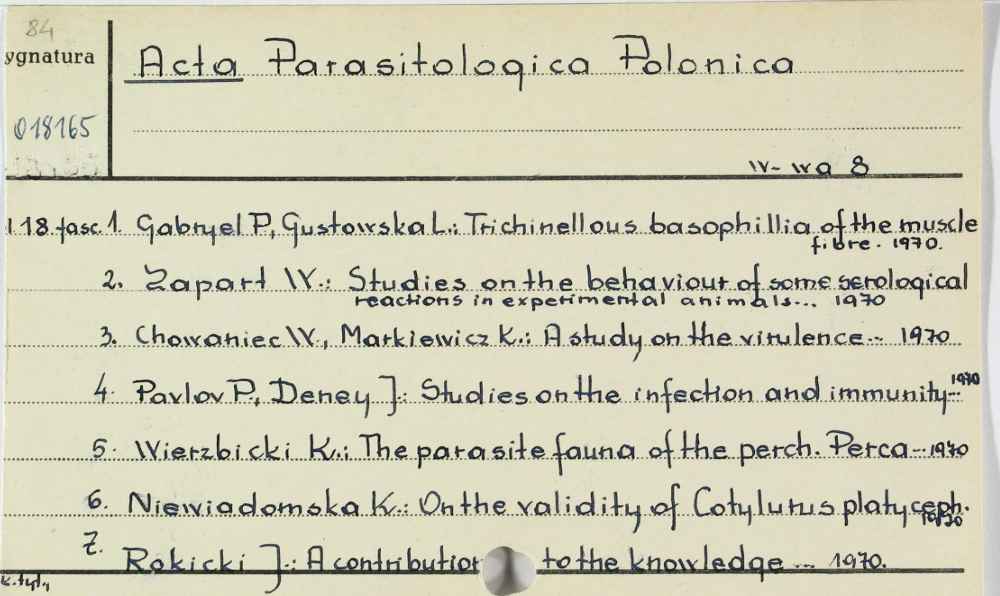 84
ygnatura
Acta Parasitologica Polonica
018165
W-wa 8
18 fasc. 1. Gabryel P., Gustowska L.: Trichinellous basophillia of the muscle
fibre. 1970.
2. Zapart W.: Studies on the behaviour of some serological
reactions in experimental animals... 1970
3. Chowaniec W., Markiewicz K.: A study on the virulence... 1970
4. Pavlov P., Deney J.: Studies on the infection and immunity... 1970
5. Wierzbicki K.: The parasite fauna of the perch. Perca... 1970
6. Niewiadomska K.: On the validity of Cotylurus platyceph.
1970
7. Rokicki J.: A contribution to the knowledge ... 1970.
k. tyt.